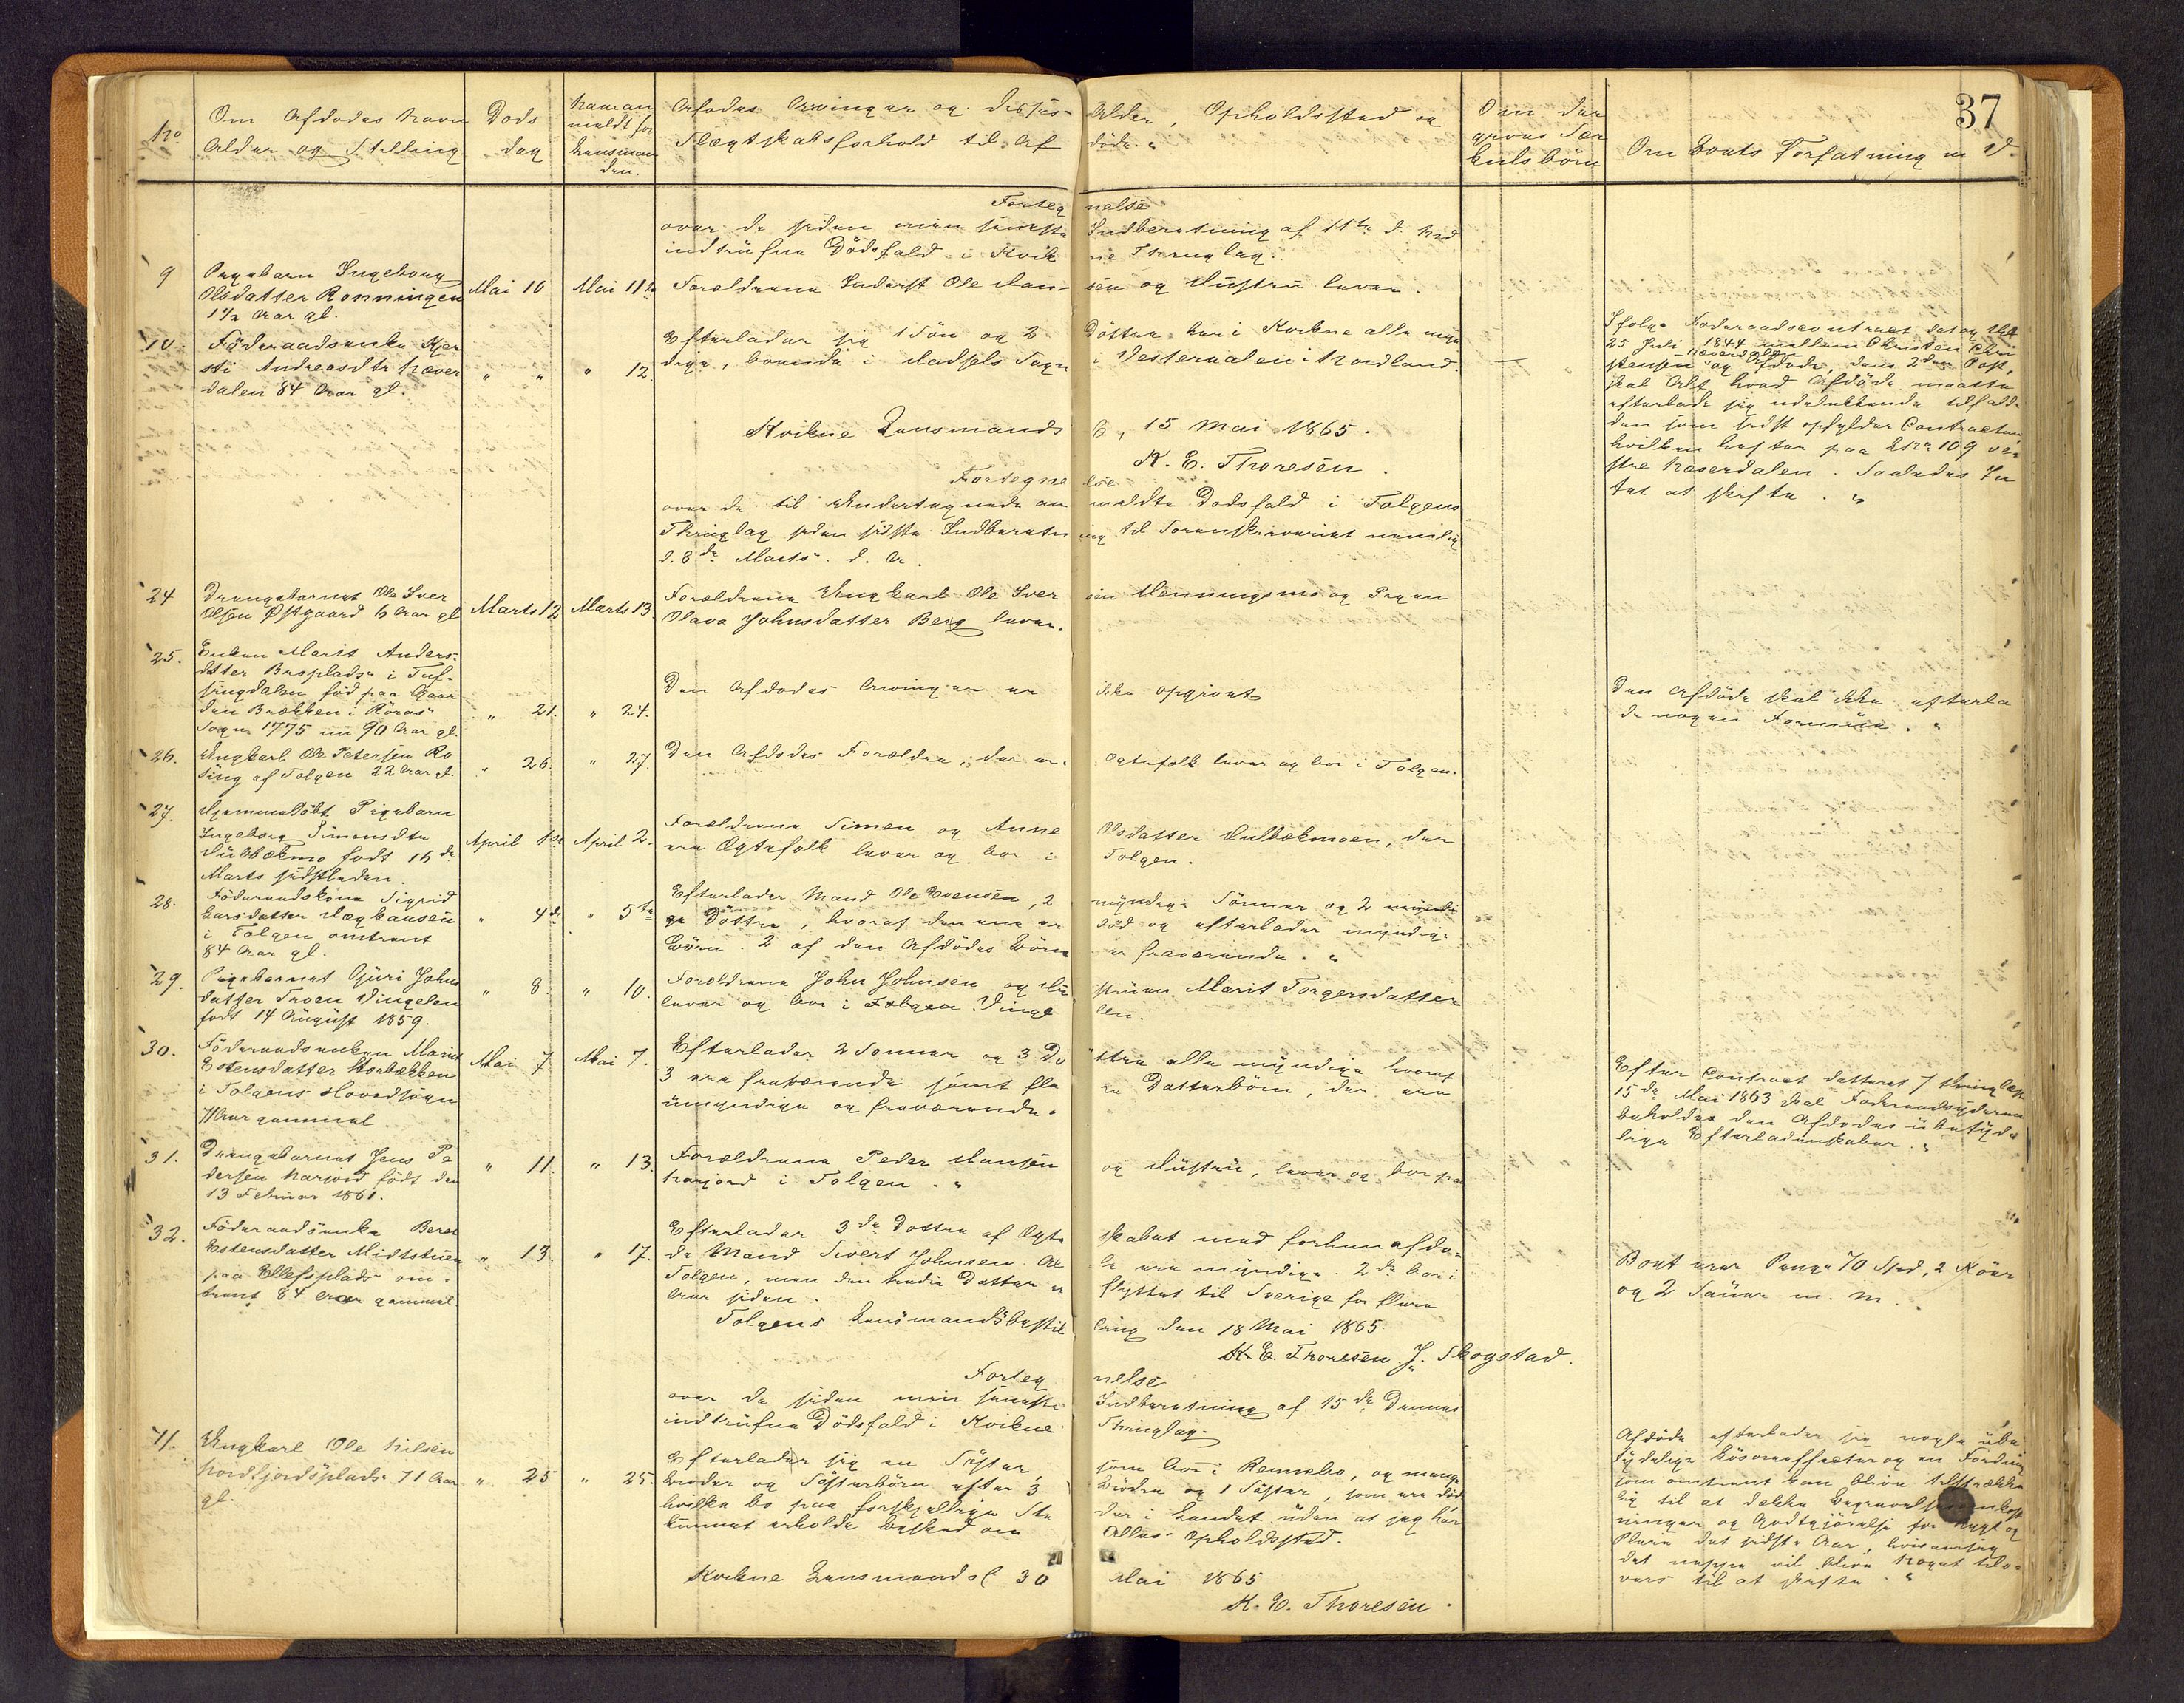 37
No
Om Afdødes Navn
Alder og Stilling
Døds
dag
Naar an
meldt for
Lensman
den.
Afdødes Arvinger og disses Alder, Opholdsstad og
Slægtskabsforhold til Af døde.
Om der
gives Sær
kulsbörn
Om Boets Forfatning m V.
Forteg nelse
over de siden min seneste Indberetning af 11te d. Md
indtrufne Dödsfald i Kvik ne Thinglag.
9
Pigebarn Ingeborg
Olsdatter Rønningen
1 1/2 Aar gl.
Mai 10
Mai 11te
Forældrene Inderst Ole Han- sen og Hustru lever.
10
Föderaadsenke Kjer
sti Andreasdtr Næver
dalen 84 Aar gl.
" "
" 12.
Efterlader sig 1 Søn og 2 Döttre her i Kvikne alle myn
dige, boende i Hadsels Sogn i Vesteraalen i Nordland.
Ifølge Foderaadscontract dat og
25 Juli 1844 mellem Christen Chri
stensen Næverdalen og Afdøde, dens 2den Post,
skal Alt hvad Afdöde maatte
efterlade sig udelukkende tilfalde
den som sidst opfylder Contracten,
hvilken hefter paa LNr 109 ve-
stre Næverdalen. Saaledes In
tet at skifte. "
Kvikne Lensmands b, 15 Mai 1865.
K. E. Thoresen.
Fortegne lse
over de til Undertegnede an meldte Dødsfald i Tolgens
Thinglag siden sidste Indberetn ing til Sorenskriveriet nemlig
d. 8de Marts d. A.
24
Drengebarnet Ole Iver
Olsen Østgaard 6 Aar gl
Marts 12
Marts 13.
Forældrene Ungkarl Ole Iver sen Henningsmo og Pigen
Olava Johnsdatter Berg lever.
25.
Enken Marit Anders-
datter Broplads i Tuf-
singdalen föd paa Gaar
den Brækken i Röraas
Sogn 1775 nu 90 Aar gl.
" 21.
" 24.
Den Afdødes Arvinger er ikke opgivet
Den Afdöde skal ikke efterla
de nogen Formue. "
26.
Ungkarl Ole Petersen Ro
sing af Tolgen 22 Aar gl.
" 26.
" 27.
Den Afdødes Forældre, der er Ægtefolk lever og bor i Tolgen.
27.
Hjemmedöbt Pigebarn
Ingeborg Simensdtr
Hulbækmo født 16de
Marts sidstleden.
April 1ste
April 2.
Forældrene Simen og Anne Olsdatter Hulbækmoen, der
ere Ægtefolk lever og bor i Tolgen.
28.
Föderaadskone Sigrid
Larsdatter
i Tolgen omtrent
84 Aar gl.
" 4de
" 5te
Efterlader Mand Ole Evensen, 2 myndige Sönner og 2 myndi
ge Döttre, hvoraf den ene er död og efterlader myndige
Börn. 2 af den Afdödes Börn er fraværende. "
29.
Pigebarnet Gjuri Johns
datter Troen Vingelen
født 14 August 1859.
" 8.
" 10.
Forældrene John Johnsen og Hu struen Marit Torgersdatter
lever og bor i Tolgen Vinge len.
30.
Föderaadsenken Marit
Estensdatter Storbækken
i Tolgens Hovedsogn
Aar gammel.
Mai 7.
Mai 7.
Efterlader 2 Sønner og 3 Dö ttre alle myndige hvoraf
3 ere fraværende samt fle re Datterbörn, der ere
umyndige og fraværende.
Efter Contract datteret 7 thinglæst
15de Mai 1863 skal Foderaadsyderen
beholde den Afdødes ubetyde
lige Efterladenskaber. "
31.
Drengebarnet Jens Pe
dersen Narjord födt den
13 Februar 1861.
" 11.
" 13
Forældrene Peder Hansen og Hustru, lever og bor paa
Narjord i Tolgen. "
32.
Föderaadsenke Beret
Estensdatter Midtstuen
paa Ellefsplads om-
trent 84 Aar gammel
" 13.
" 17.
Efterlader 3de Døttre af Ægte skabet med forhen afdø-
de Mand Sivert Johnsen. Al le ere myndige. 2de bor i
Tolgen, men den tredie Datter er flyttet til Sverige for flere
Aar siden.
Boet eier Penge 70 Spd, 2 Köer
og 2 Sauer m. m.
Tolgens Lensmandsbestil ling den 18 Mai 1865.
K. E. Thoresen. J. Skogstad.
Forteg nelse
over de siden min seneste Indberetning af 15de Dennes
indtrufne Dödsfald i Kvikne Thinglag.
11.
Ungkarl Ole Nilsen
Nordfjordsplads 71 Aar
gl.
" 25
" 25.
Efterlader sig en Söster, som bor i Rennebo, og mange
Broder og Sösterbörn efter 3 Brödre og 1 Söster, som ere död
hvilke bo paa forskjellige Ste der i Landet uden at jeg har
kunnet erholde Besked om Alles Opholdssted.
Afdöde efterlader sig nogle ube
tydelige Lösöreeffecter og en Fordring
som omtrent kan blive tilstrække
lig til at dække Begravelsesomkost
ninger og Godtgjörelse for Rygt og
Pleie det sidste Aar, hvis
det neppe vil blive Noget tilo-
vers til at skifte. "
Kvikne Lensmandsb 30 Mai 1865
K. E. Thoresen.